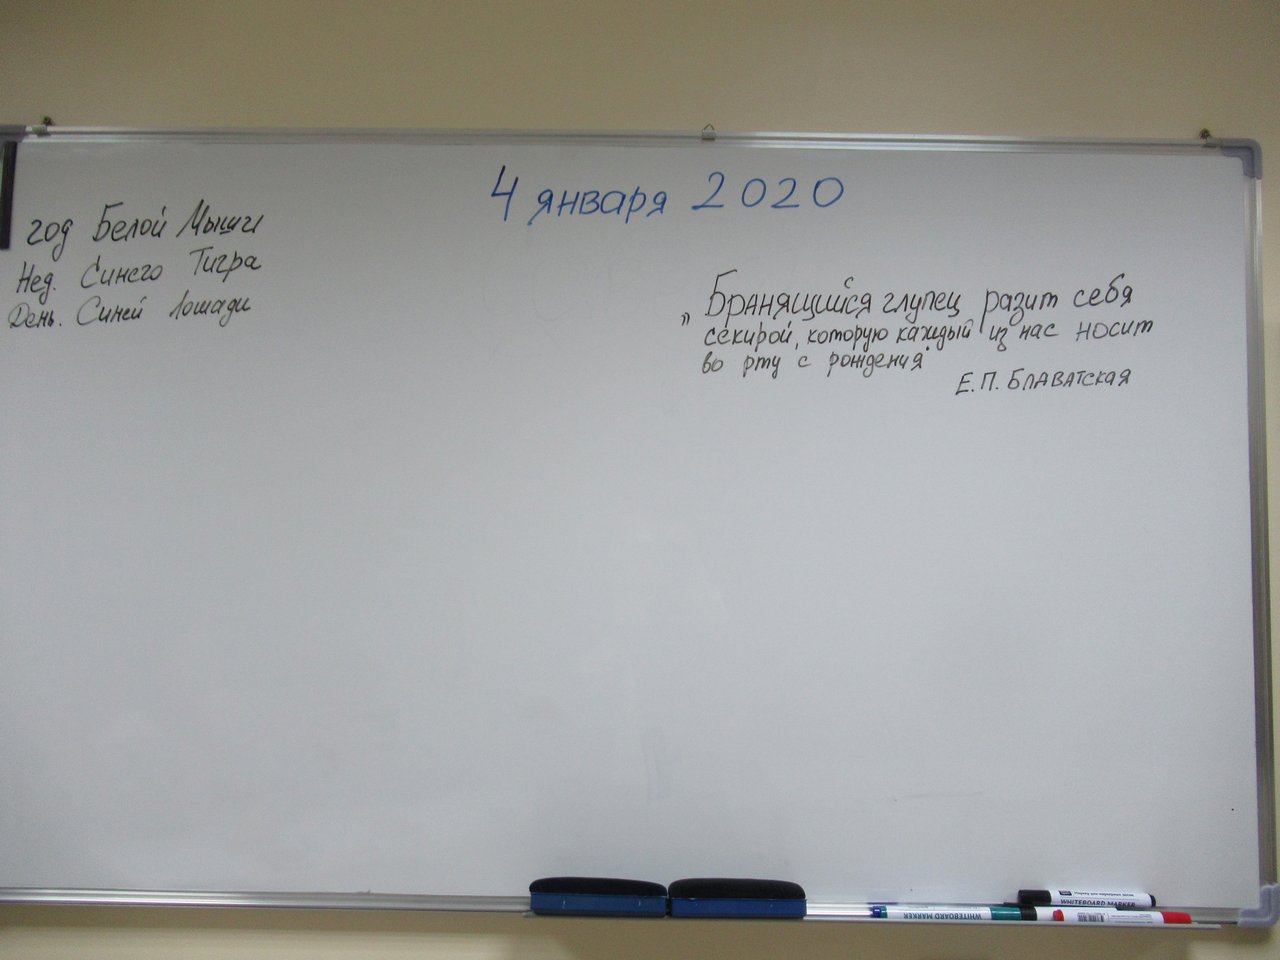 4 января 2020
год Белой Мыши
Нед. Синего Тигра
День. Синей Лошади
„Бранящийся глупец разит себя
секирой, которую каждый из нас носит
во рту с рождения"
Е.П. Блаватская
WHITEBOARD MARKER
WHITEBOARD MARKER